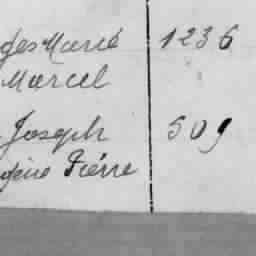 ges Marie 1236
Marcel
Joseph 509
gène Pierre